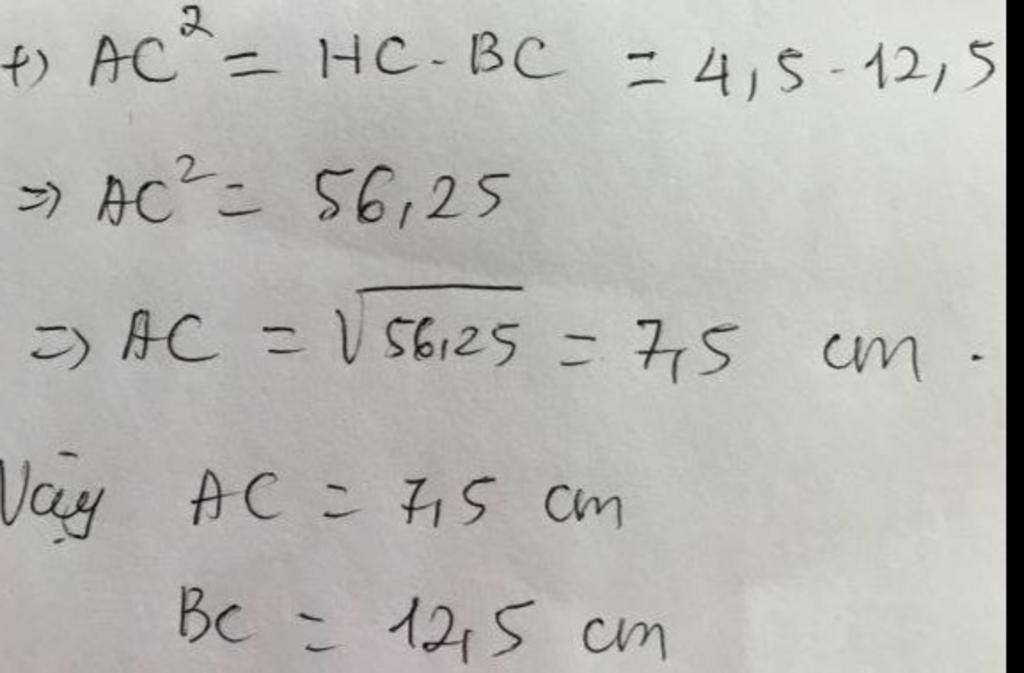 +) AC² = HC . BC = 4,5 . 12,5
=> AC² = 56,25
=> AC = √56,25 = 7,5 cm .
Vậy AC = 7,5 cm
BC = 12,5 cm